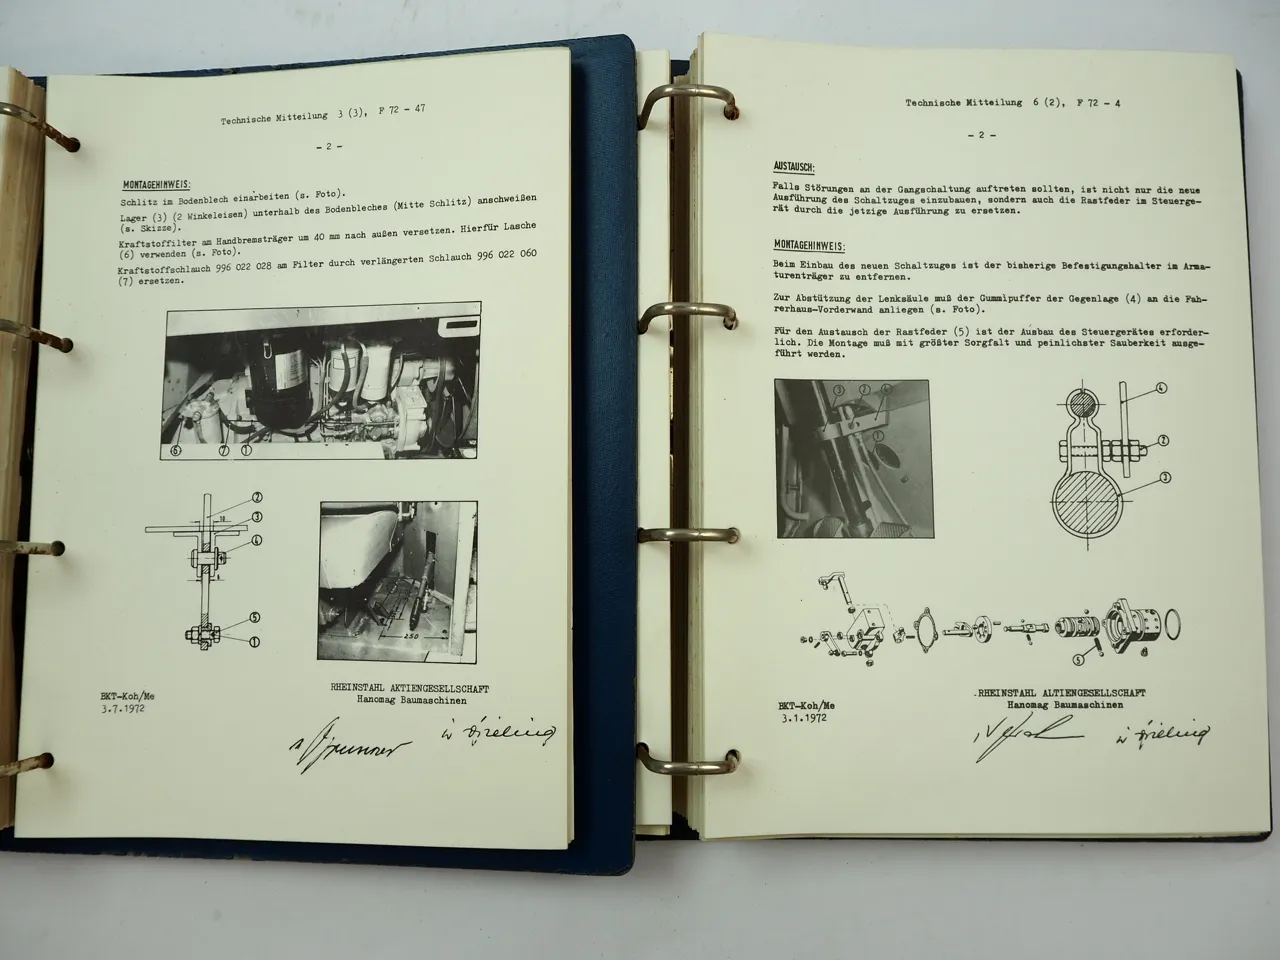 Technische Mitteilung 3 (3), F 72 - 47
- 2 -
MONTAGEHINWEIS:
Schlitz im Bodenblech einarbeiten (s. Foto).
Lager (3) (2 Winkeleisen) unterhalb des Bodenbleches (Mitte Schlitz) anschweißen
(s. Skizze).
Kraftstoffilter am Handbremsträger um 40 mm nach außen versetzen. Hierfür Lasche
(6) verwenden (s. Foto).
Kraftstoffschlauch 996 022 028 am Filter durch verlängerten Schlauch 996 022 060
(7) ersetzen.
6 7 1
2
18
3
4
6
5
1
250
RHEINSTAHL AKTIENGESELLSCHAFT
Hanomag Baumaschinen
BKT-Koh/Me
3.7.1972
Technische Mitteilung 6 (2), F 72 - 4
- 2 -
AUSTAUSCH:
Falls Störungen an der Gangschaltung auftreten sollten, ist nicht nur die neue
Ausführung des Schaltzuges einzubauen, sondern auch die Rastfeder im Steuerge-
rät durch die jetzige Ausführung zu ersetzen.
MONTAGEHINWEIS:
Beim Einbau des neuen Schaltzuges ist der bisherige Befestigungshalter im Arma-
turenträger zu entfernen.
Zur Abstützung der Lenksäule muß der Gummipuffer der Gegenlage (4) an die Fah-
rerhaus-Vorderwand anliegen (s. Foto).
Für den Austausch der Rastfeder (5) ist der Ausbau des Steuergerätes erforder-
lich. Die Montage muß mit größter Sorgfalt und peinlichster Sauberkeit ausge-
führt werden.
3 2 4
1
4
2
3
5
RHEINSTAHL ALTIENGESELLSCHAFT
Hanomag Baumaschinen
BKT-Koh/Me
3.1.1972